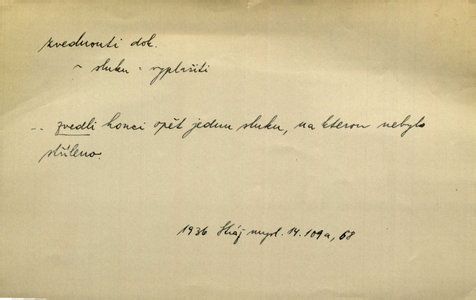 zvednouti dok.
~ sluku = vyplašiti
.. zvedli honci opět jednu sluku, na kterou nebylo
stříleno.
1936 Stráž mysl. 14. 109a, 68